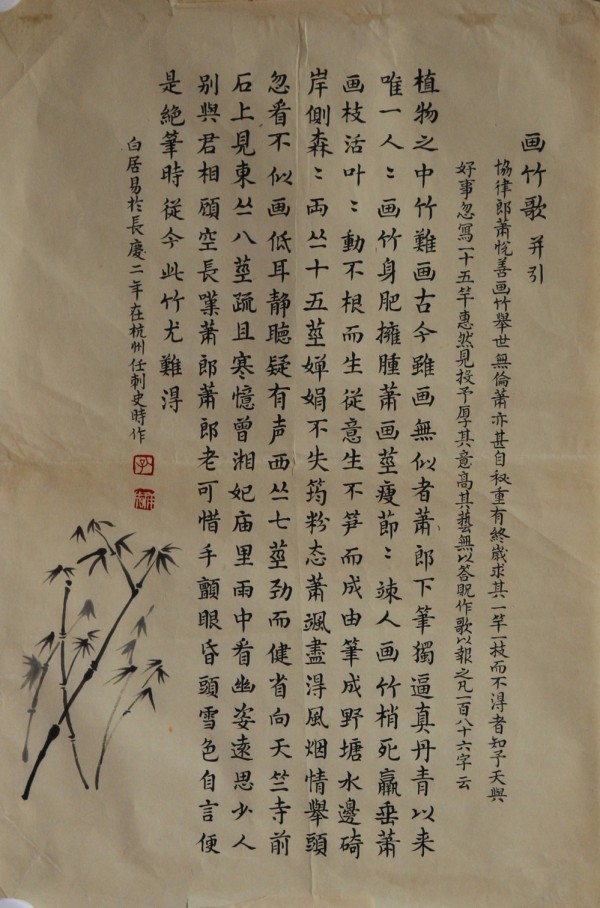 画竹歌 并引
協律郎萧悅善画竹舉世無倫萧亦甚自秘重有終歲求其一竿一枝而不得者知予天與
好事忽寫一十五竿惠然見投予厚其意高其藝無以答貺作歌以報之凡一百八十六字云
植物之中竹難画古今雖画無似者萧郎下筆獨逼真丹青以来
唯一人〻画竹身肥擁腫萧画莖瘦節〻竦人画竹梢死羸垂萧
画枝活叶〻動不根而生從意生不笋而成由筆成野塘水邊碕
岸側森〻両丛十五莖嬋娟不失筠粉态萧颯盡得風烟情舉頭
忽看不似画低耳静聽疑有声西丛七莖劲而健省向天竺寺前
石上見東丛八莖疏且寒憶曾湘妃庙里雨中看幽姿遠思少人
别與君相顾空長嘆萧郎萧郎老可惜手顫眼昏頭雪色自言便
是絶筆時從今此竹尤難得
白居易於長慶二年在杭州任刺史時作